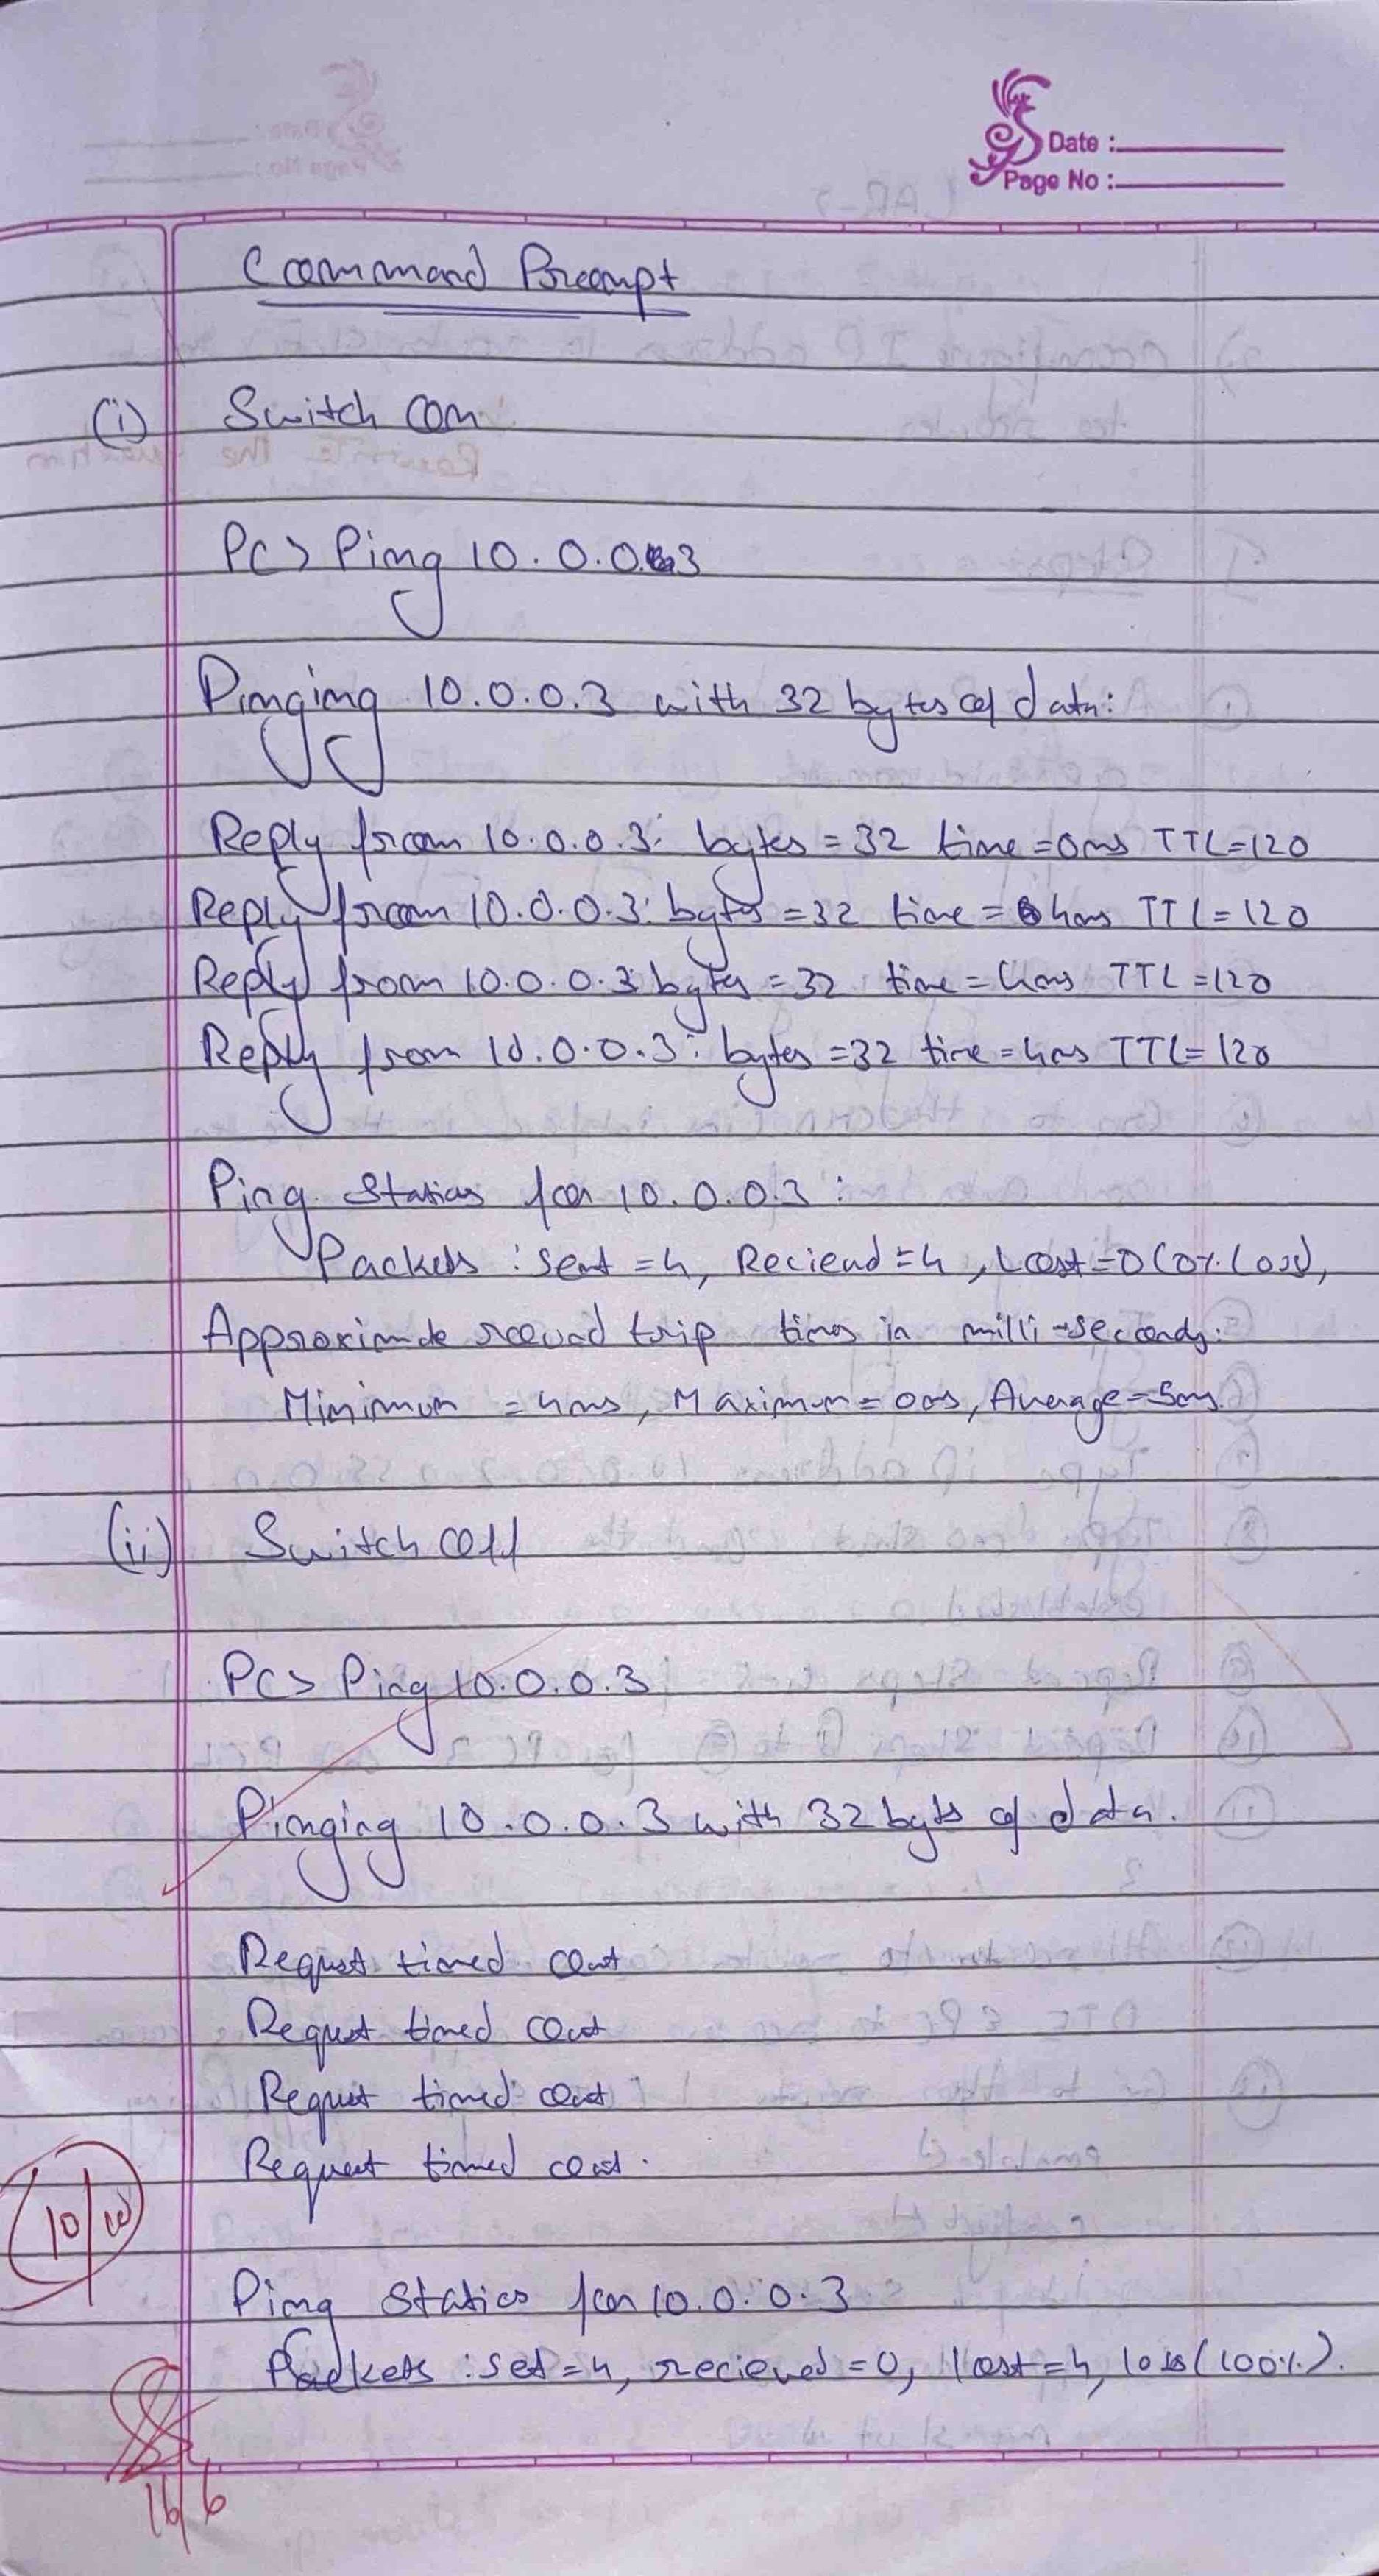 Date :
Page No :
Command Prompt
(i) Switch on
PC> Ping 10.0.0.3
Pinging 10.0.0.3 with 32 bytes of data:
Reply from 10.0.0.3: bytes = 32 time = 0ms TTL = 120
Reply from 10.0.0.3: bytes = 32 time = 4ms TTL = 120
Reply from 10.0.0.3: bytes = 32 time = 4ms TTL = 120
Reply from 10.0.0.3: bytes = 32 time = 4ms TTL = 120
Ping Statics for 10.0.0.3 :
Packets : Sent = 4, Recieved = 4, Lost = 0 (0% loss),
Approximate round trip times in milli-seconds:
Minimum = 4ms, Maximum = 0ms, Average = 5ms.
(ii) Switch off
PC> Ping 10.0.0.3
Pinging 10.0.0.3 with 32 byts of data.
Request timed out
Request timed out
Request timed out
Request timed out.
10/10
Ping Statics for 10.0.0.3
Packets : set = 4, recieved = 0, lost = 4, loss (100%).
16/6